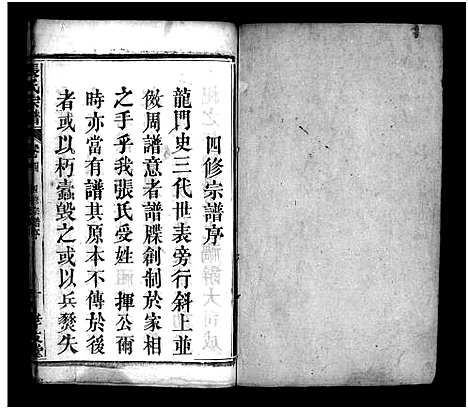 四修宗譜序
龍門史三代世表旁行斜上並
倣周譜意者譜牒創制於家相
之手乎我張氏受姓 揮公爾
時亦當有譜其原本不傳於後
者或以朽蠹毀之或以兵燹失
張氏宗譜